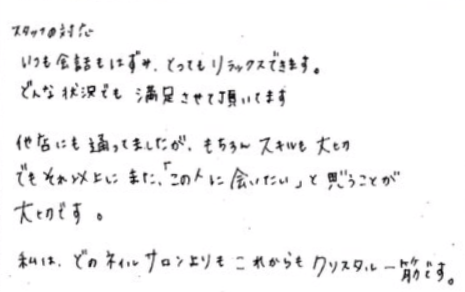 スタッフの対応
いつも会話もはずみ、とってもリラックスできます。
どんな状況でも満足させて頂いてます
他店にも通ってましたが、もちろんスキルも大切
でもそれ以上にまた、「この人に会いたい」と思うことが
大切です。
私は、どのネイルサロンよりもこれからもクリスタル一筋です。